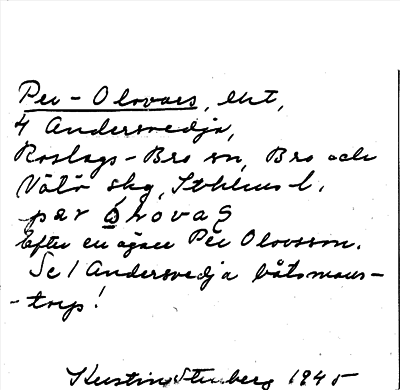 Per-Olovars, lht,
4 Andersvedja,
Roslags-Bro sn, Bro och
Vätö skg, Sthlms l.
pær òlovaș
Efter en ägare Per Olovsson.
Se 1 Andersvedja båtsmans-
-torp!
Kerstin Stenberg 1945